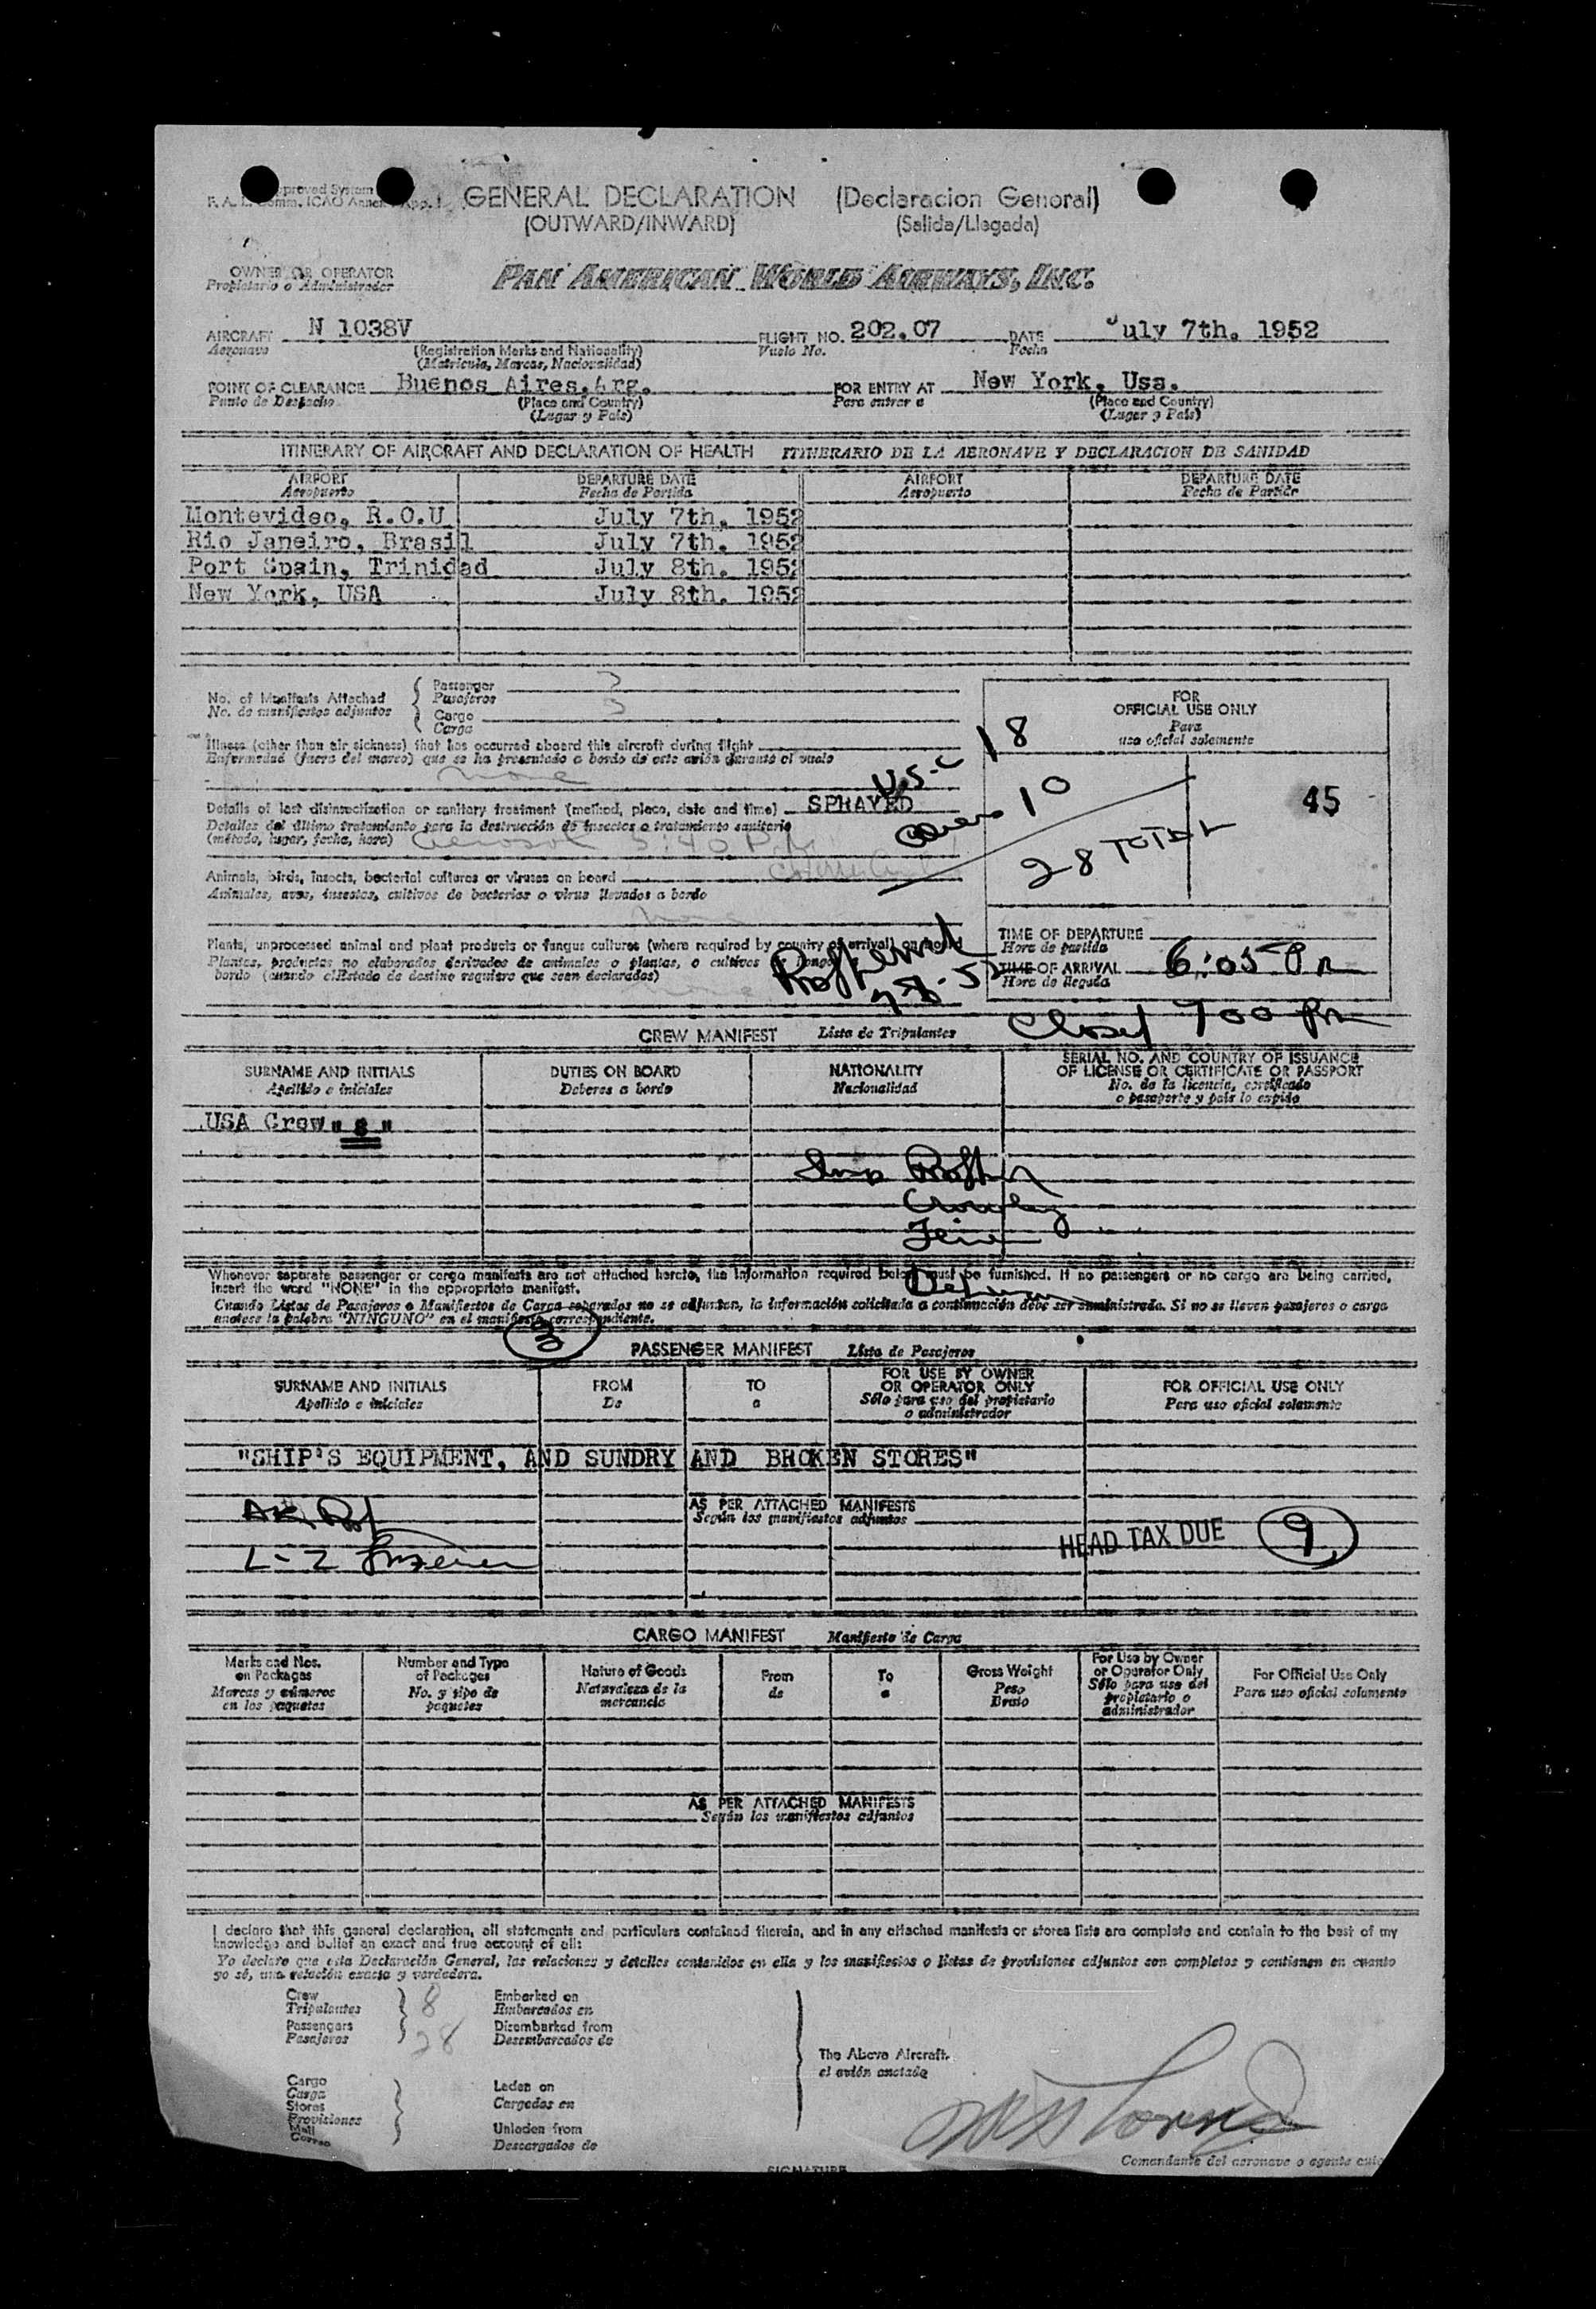 proved System
F. A. L. Comm. ICAO Annex App. 1
GENERAL DECLARATION (Declaracion General)
(OUTWARD/INWARD) (Salida/Llegada)
OWNER OR OPERATOR
Propietario o Administrador
PAN AMERICAN WORLD AIRWAYS, INC.
AIRCRAFT N 1038V FLIGHT NO. 202.07 DATE July 7th. 1952
Aeronave (Registration Marks and Nationality) Vuelo No. Fecha
(Matricula, Marcas, Nacionalidad)
POINT OF CLEARANCE Buenos Aires, Arg. FOR ENTRY AT New York, Usa.
Punto de Despacho (Place and Country) Para entrar a (Place and Country)
(Lugar y País) (Lugar y País)
ITINERARY OF AIRCRAFT AND DECLARATION OF HEALTH ITINERARIO DE LA AERONAVE Y DECLARACION DE SANIDAD
AIRPORT DEPARTURE DATE AIRPORT DEPARTURE DATE
Aeropuerto Fecha de Partida Aeropuerto Fecha de Partida
Montevideo, R.O.U July 7th. 1952
Rio Janeiro, Brasil July 7th. 1952
Port Spain, Trinidad July 8th. 1952
New York, USA July 8th. 1952
No. of Manifests Attached
No. de manifiestos adjuntos
Passenger
Pasajeros
Cargo 3
Carga
FOR
OFFICIAL USE ONLY
Para
uso oficial solamente
Illness (other than air sickness) that has occurred aboard this aircraft during flight
Enfermedad (fuera del mareo) que se ha presentado a bordo de este avión durante el vuelo
none
U.S.C 18
10
28 TOTAL
45
Details of last disinsectization or sanitary treatment (method, place, date and time) SPRAYED
Detalles del último tratamiento para la destrucción de insectos o tratamiento sanitario
(método, lugar, fecha, hora) aerosol 5:40 P.M.
Animals, birds, insects, bacterial cultures or viruses on board
Animales, aves, insectos, cultivos de bacterias o virus llevados a bordo
none
Plants, unprocessed animal and plant products or fungus cultures (where required by country of arrival) on board
Plantas, productos no elaborados derivados de animales o plantas, o cultivos de hongos a
bordo (cuando el Estado de destino requiere que sean declarados)
none
TIME OF DEPARTURE
Hora de partida
TIME OF ARRIVAL 6:05 Pm
Hora de llegada
Closed 700 Pm
CREW MANIFEST Lista de Tripulantes
SURNAME AND INITIALS DUTIES ON BOARD NATIONALITY SERIAL NO. AND COUNTRY OF ISSUANCE
OF LICENSE OR CERTIFICATE OR PASSPORT
Apellido e iniciales Deberes a bordo Nacionalidad No. de la licencia, certificado
o pasaporte y país lo expido
USA Crew " 8 "
Whenever separate passenger or cargo manifests are not attached hereto, the information required below must be furnished. If no passengers or no cargo are being carried,
insert the word "NONE" in the appropriate manifest.
Cuando Listas de Pasajeros o Manifiestos de Carga separados no se adjuntan, la información solicitada a continuación debe ser suministrada. Si no se lleven pasajeros o carga
anotese la palabra "NINGUNO" en el manifiesto correspondiente.
3
PASSENGER MANIFEST Lista de Pasajeros
SURNAME AND INITIALS FROM TO FOR USE BY OWNER
OR OPERATOR ONLY FOR OFFICIAL USE ONLY
Apellido e iniciales De a Sólo para uso del propietario
o administrador Para uso oficial solamente
"SHIP'S EQUIPMENT, AND SUNDRY AND BROKEN STORES"
AS PER ATTACHED MANIFESTS
Según los manifiestos adjuntos
HEAD TAX DUE 9
CARGO MANIFEST Manifiesto de Carga
Marks and Nos.
on Packages
Marcas y números
en los paquetes
Number and Type
of Packages
No. y tipo de
paquetes
Nature of Goods
Naturaleza de la
mercancia
From
de
To
a
Gross Weight
Peso
Bruto
For Use by Owner
or Operator Only
Sólo para uso del
propietario o
administrador
For Official Use Only
Para uso oficial solamente
AS PER ATTACHED MANIFESTS
Según los manifiestos adjuntos
I declare that this general declaration, all statements and particulars contained therein, and in any attached manifests or stores lists are complete and contain to the best of my
knowledge and belief an exact and true account of all:
Yo declaro que esta Declaración General, las relaciones y detalles contenidos en ella y los manifiestos o listas de provisiones adjuntos son completos y contienen en cuanto
yo sé, una relación exacta y verdadera.
Crew 8 Embarked on
Tripulantes Embarcados en
Passengers 28 Disembarked from
Pasajeros Desembarcados de
The Above Aircraft.
el avión anotado
Cargo
Carga
Stores
Provisiones
Mail
Correo
Laden on
Cargados en
Unladen from
Descargados de
SIGNATURE
Comandante del aeronave o agente